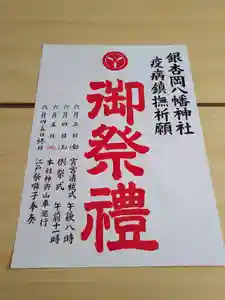 銀杏岡八幡神社
疫病鎮撫祈願
御祭禮
六月三日（金）宵宮清祓式 午後八時
六月四日（土）例祭式 午前十一時
六月五日（日）本社神輿山車巡行
六月四・五日終日 江戸祭囃子奉奏